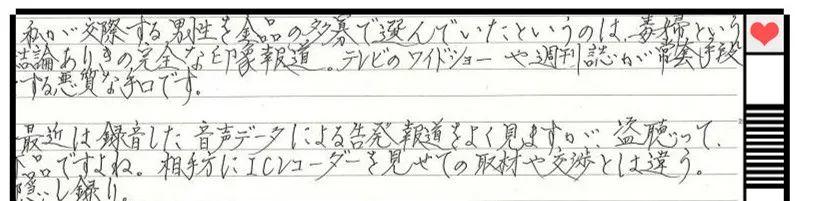 私が交際する男性を金品の多募で選んでいたというのは、毒婦という
結論ありきの完全な印象報道。テレビのワイドショーや週刊誌が常套手段
する悪質な手口です。
最近は録音した音声データによる告発報道をよく見ますが、盗聴って、
品ですよね。相手方にICレコーダーを見せての取材や交渉とは違う。
隠し録り。